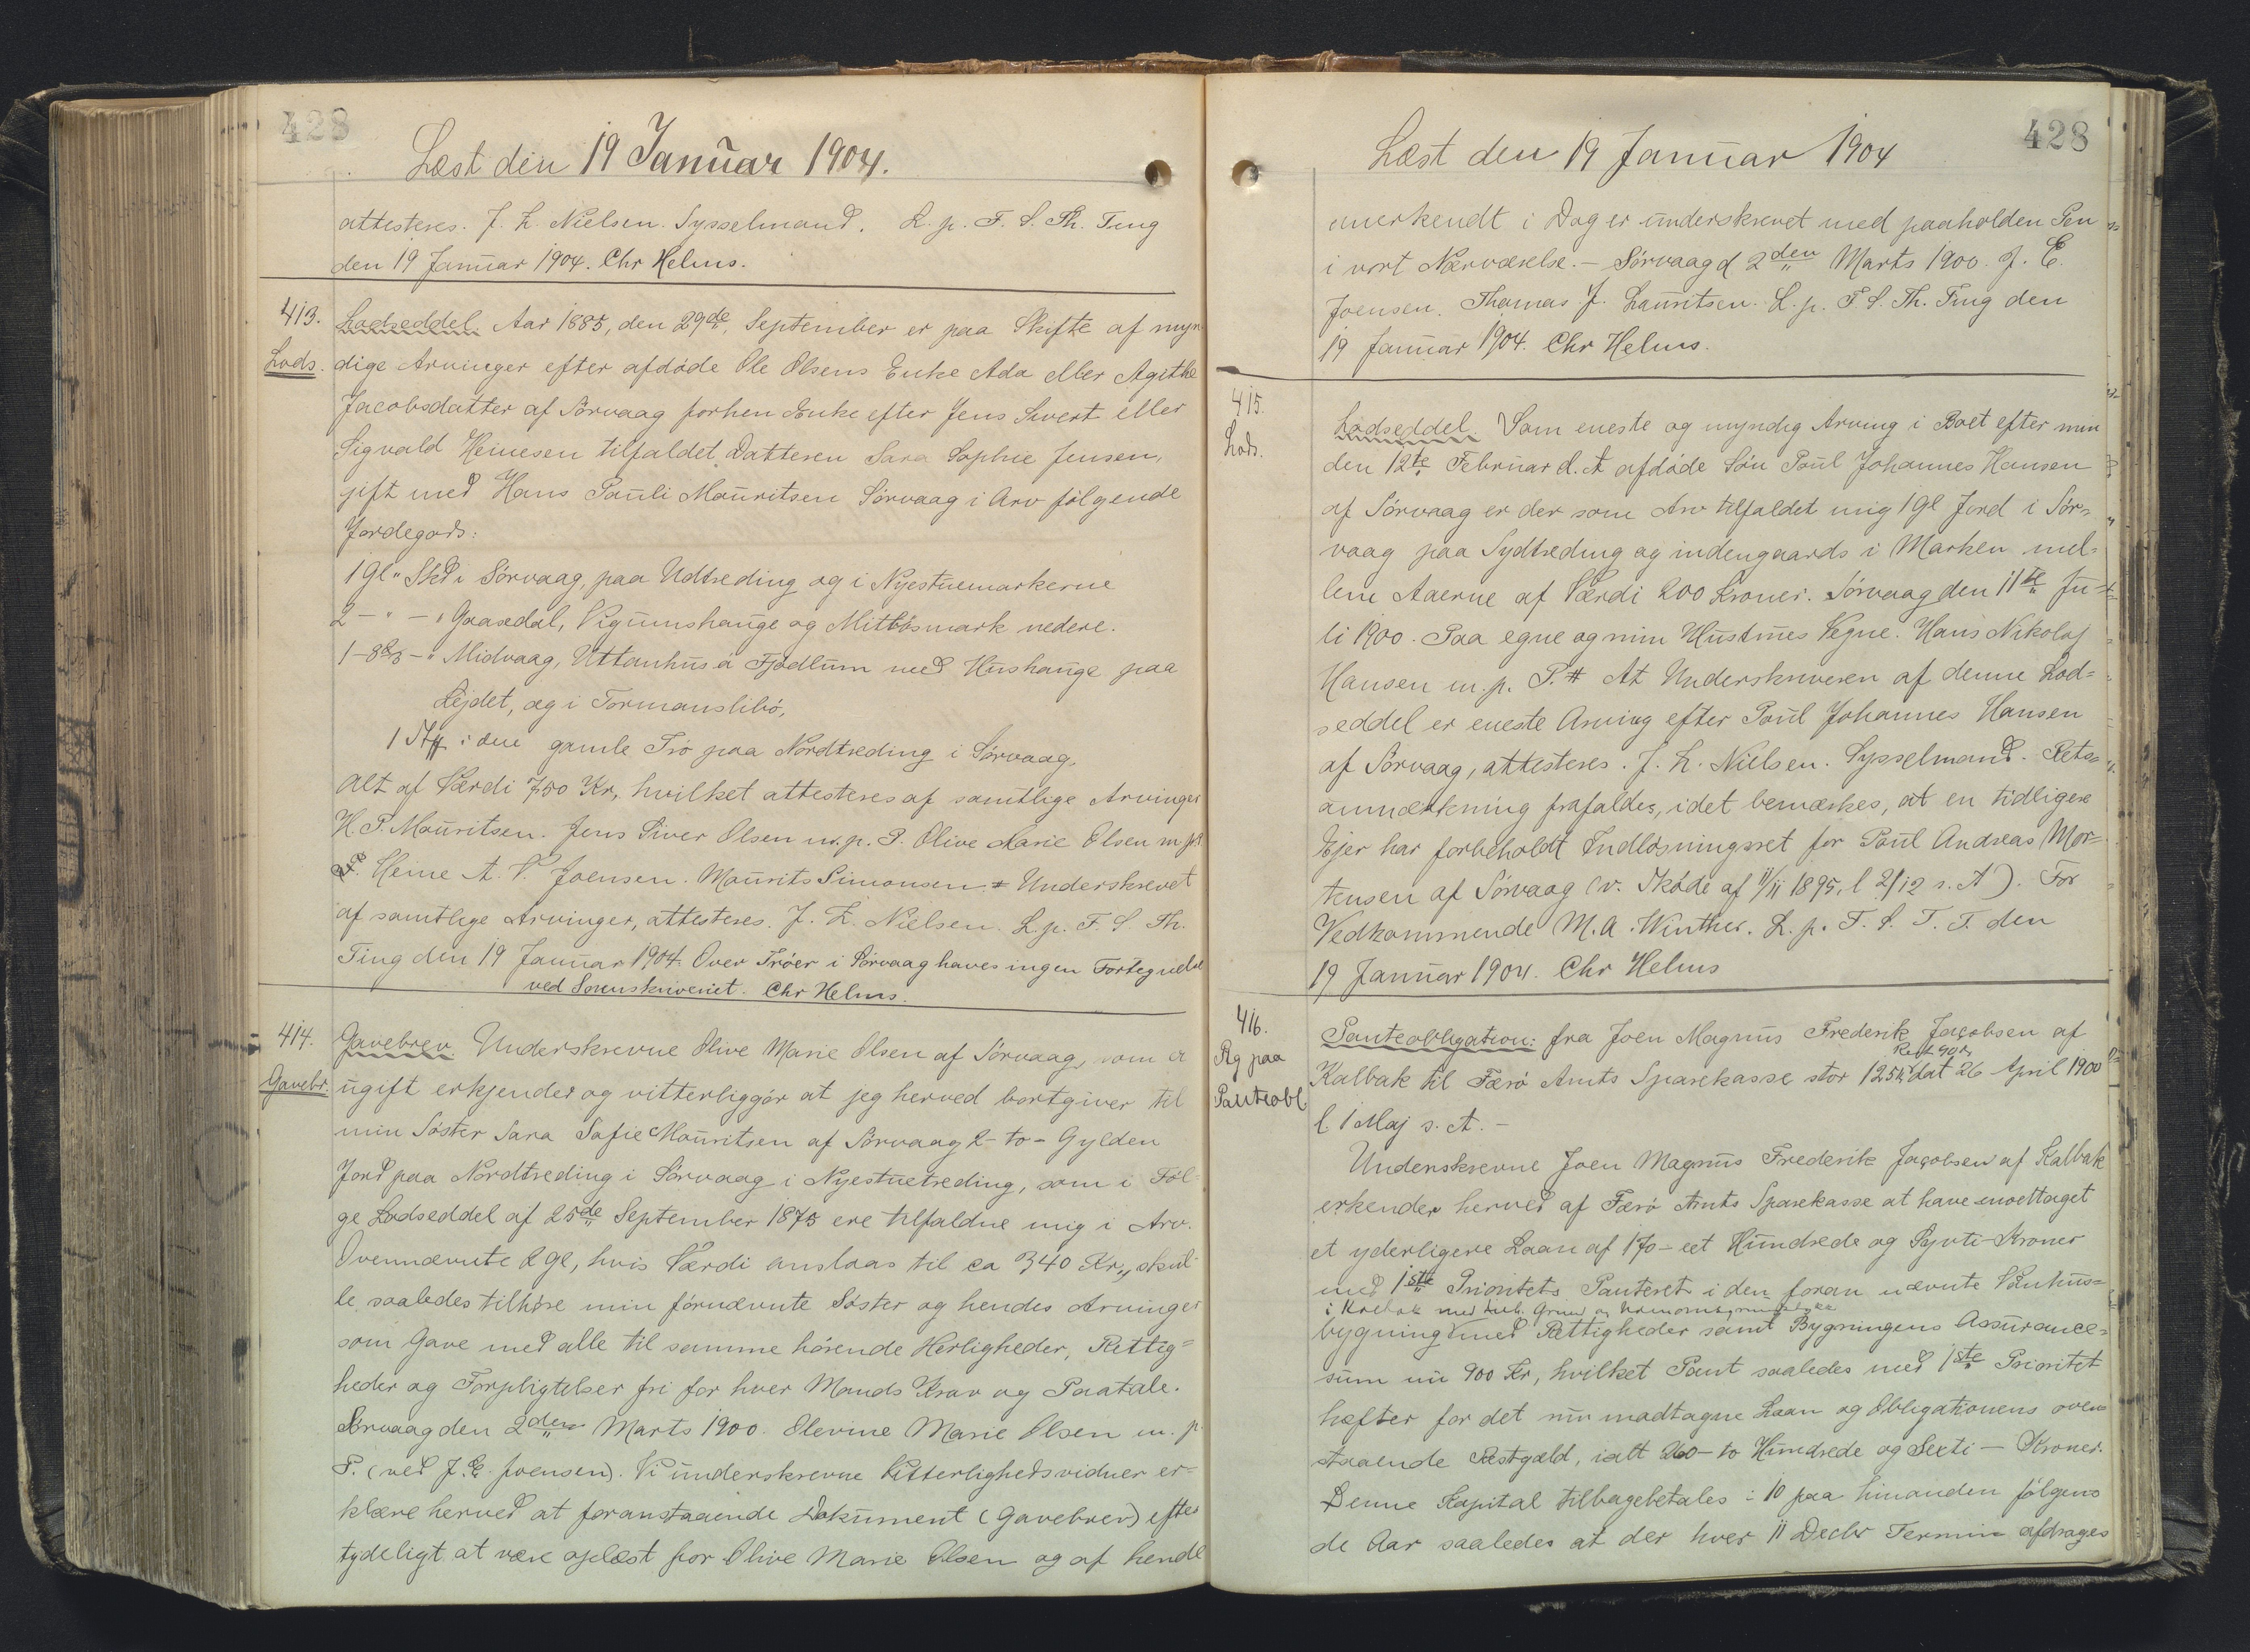 428
Læst den 19 Januar 1904.
attesteres. J. L. Nielsen. Sysselmand. L. p. F. S. Th. Ting
den 19 Januar 1904. Chr Helms.
413.
Lods.
Lodseddel. Aar 1885, den 29de September er paa Skifte af myn
dige Arvinger efter afdøde Ole Olsens Enke Ada eller Agathe
Jacobsdatter af Sørvaag forhen Enke efter Jens Sivert eller
Sigvald Heinesen tilfaldet Datteren Sara Sophie Jensen,
gift med Hans Pauli Mauritsen Sørvaag i Arv følgende
Jordegods:
1 Gl " Skd i Sørvaag, paa Udtreding og i Nyestuemarkerne
2 - " - " Gaasedal, Vigumshauge og Mittøsmark nedere.
1 - 8 2/3 - " Midvaag, Uttanhusa Fjødlum med Hushauge paa
Ejdet, og i Tormanslibø,
1 St i den gamle Trø paa Nordtreding i Sørvaag,
Alt af Værdi 750 Kr, hvilket attesteres af samtlige Arvinger
H. P. Mauritsen. Jens Siver Olsen m. p. P. Olive Marie Olsen m p.
P. Heine A. V. Joensen. Maurits Simonsen # Underskrevet
af samtlige Arvinger, attesteres. J. L. Nielsen. L. p. F. S. Th.
Ting den 19 Januar 1904. Over Trøer i Sørvaag haves ingen Fortegnelse
ved Sorenskriveriet. Chr Helms.
414.
Gavebr.
Gavebrev. Underskrevne Olive Marie Olsen af Sørvaag, som er
ugift erkjender og vitterliggør at jeg herved bortgiver til
min Søster Sara Safie Mauritsen af Sørvaag 2 - to - Gylden
Jord paa Nordtreding i Sørvaag i Nyestuetreding, som i Føl-
ge Lodseddel af 25de September 1875 ere tilfaldne mig i Arv.
Ovennævnte 2 Gl, hvis Værdi anslaas til ca 340 Kr, skul-
le saaledes tilhøre min førnævnte Søster og hendes Arvinger
som Gave med alle til samme hørende Herligheder, Rettig=
heder og Forpligtelser fri for hver Mands Krav og Paatale.
Sørvaag den 2den Marts 1900. Olevine Marie Olsen m. p.
P. (ved J. E. Joensen). Vi underskrevne Vitterlighedsvidner er-
klære herved at foranstaaende Dokument (Gavebrev) efter
tydeligt at være oplæst for Olive Marie Olsen og af hende
428
Læst den 19 Januar 1904
anerkendt i Dag er underskrevet med paaholden Pen
i vort Nærværelse. - Sørvaag d 2den Marts 1900. J. E.
Joensen. Thomas J. Lauritsen. L. p. F. S. Th. Ting den
19 Januar 1904. Chr Helms.
415.
Lods.
Lodseddel. Som eneste og myndig Arving i Boet efter min
den 12te Februar d. A afdøde Søn Poul Johannes Hansen
af Sørvaag er der som Arv tilfaldet mig 1 Gl Jord i Sør=
vaag paa Sydtreding og indengaards i Marken mel-
lem Aaerne af Værdi 200 Kroner. Sørvaag den 11te Ju-
li 1900. Paa egne og min Hustrues Vegne. Hans Nikolaj
Hansen m. p. P. # At Underskriveren af denne Lod=
seddel er eneste Arving efter Poul Johannes Hansen
af Sørvaag, attesteres. J. L. Nielsen. Sysselmand. Rets=
anmærkning frafaldes, idet bemærkes, at en tidligere
Ejer har forbeholdt Indløsningsret for Poul Andreas Mor=
tensen af Sørvaag (v. Skøde af 11/11 1895, l 2/12 s. A). For
Vedkommende M. A. Winther. L. p. F. S. T. T. den
19 Januar 1904. Chr Helms
416.
Rg paa
Panteobl
Panteobligation: fra Joen Magnus Frederik Jacobsen af
Rest 90 Kr
Kalbak til Færø Amts Sparekasse stor 125 Kr dat 26 April 1900
l. 1 Maj s. A. -
Underskrevne Joen Magnus Frederik Jacobsen af Kalbak
erkender herved af Færø Amts Sparekasse at have modtaget
et yderligere Laan af 170 - eet Hundrede og Syvti - Kroner
med 1ste Prioritets Panteret i den foran nævnte Vaanhus=
i Kalbak med tilh. Grund og
bygning med Rettigheder samt Bygningens Assurance=
sum nu 900 Kr, hvilket Pant saaledes med 1ste Prioritet
hæfter for det nu modtagne Laan og Obligationens oven
staaende Restgæld, ialt 260 - to Hundrede og Sexti - Kroner.
Denne Kapital tilbagebetales i 10 paa hinanden følgen=
de Aar saaledes at der hver 11 Decbr Termin afdrages